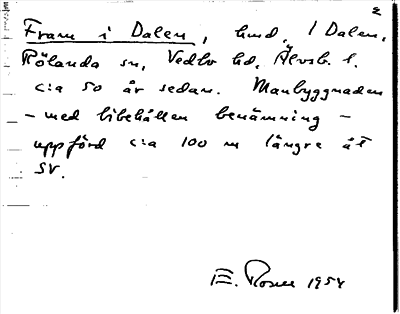 2
Fram i Dalen, hmd, 1 Dalen,
Rölanda sn, Vedbo hd, Älvsb. l.
c:a 50 år sedan. Manbyggnaden
- med bibehållen benämning -
uppförd c:a 100 m längre åt
SV.
E. Rosell 1954